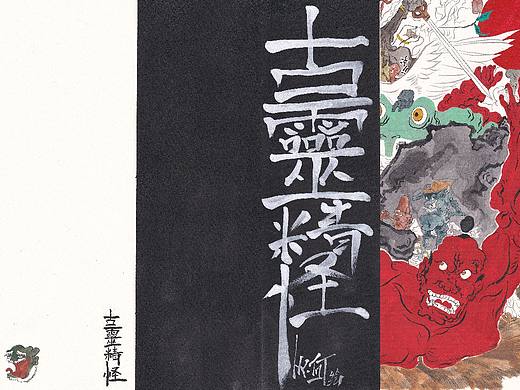 古靈精怪
古靈精怪